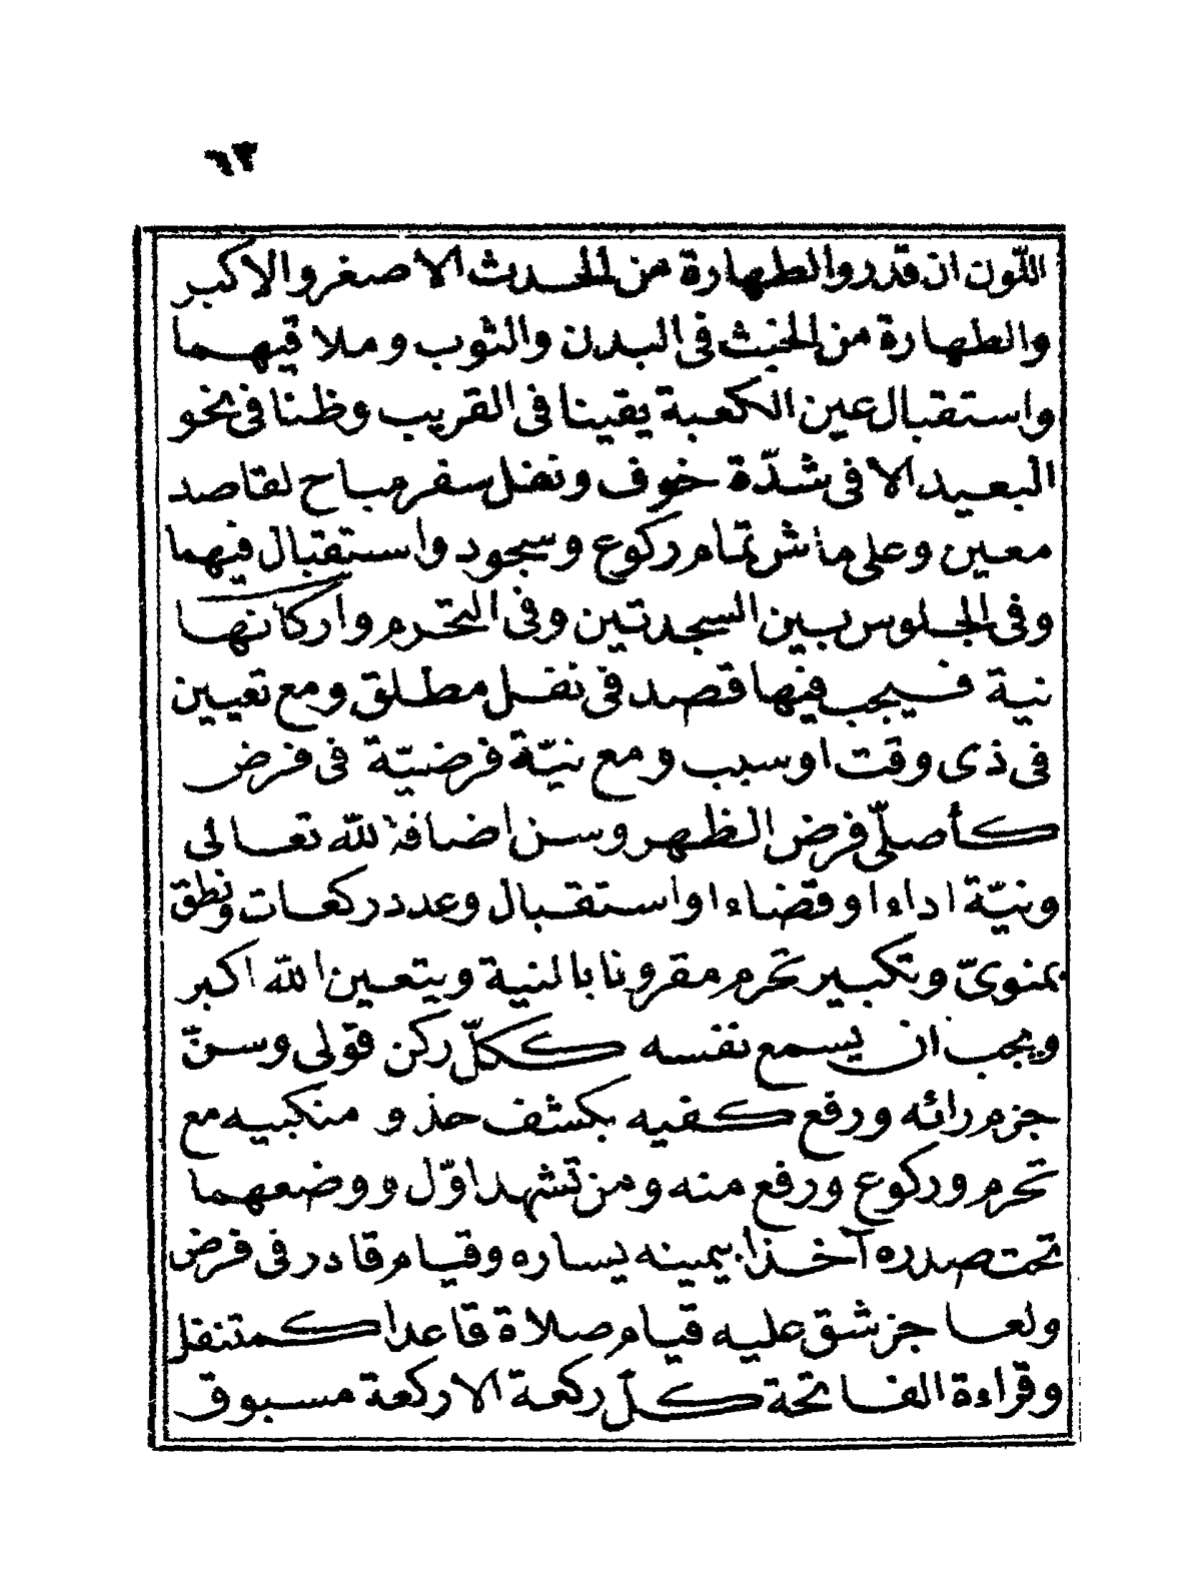 ٦٣
اللّون ان قدر والطهارة من الحدث الاصغر والاكبر
والطهارة من الخبث فى البدن والثوب وملاقيهما
واستقبال عين الكعبة يقينا فى القريب وظنا فى نحو
البعيد الا فى شدّة خوف ونفل سفر مباح لقاصد
معين وعلى ماش تمام ركوع وسجود واستقبال فيهما
وفى الجلوس بين السجدتين وفى التحرم واركانها
نية فيجب فيها قصد فى نفل مطلق ومع تعيين
فى ذى وقت او سبب ومع نيّة فرضيّة فى فرض
كأصلّى فرض الظهر وسن اضافة لله تعالى
ونيّة اداء او قضاء او استقبال وعدد ركعات ونطق
بمنوىّ وتكبير تحرم مقرونا بالنية ويتعين الله اكبر
ويجب ان يسمع نفسه ككلّ ركن قولى وسنّ
جزم رائه ورفع كفيه بكشف حذو منكبيه مع
تحرم وركوع ورفع منه ومن تشهد اوّل ووضعهما
تحت صدره آخذا بيمينه يساره وقيام قادر فى فرض
ولعاجز شق عليه قيام صلاة قاعدا كمتنفل
وقراءة الفاتحة كلّ ركعة الا ركعة مسبوق